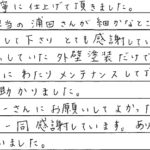 寧に仕上げて頂きました。
当の浦田さんが細かなとこ
して下さり とても感謝してい
していた外壁塗装だけで
にわたりメンテナンスして
助かりました。
ーさんにお願いしてよかった
一同感謝しています。あり
いました。